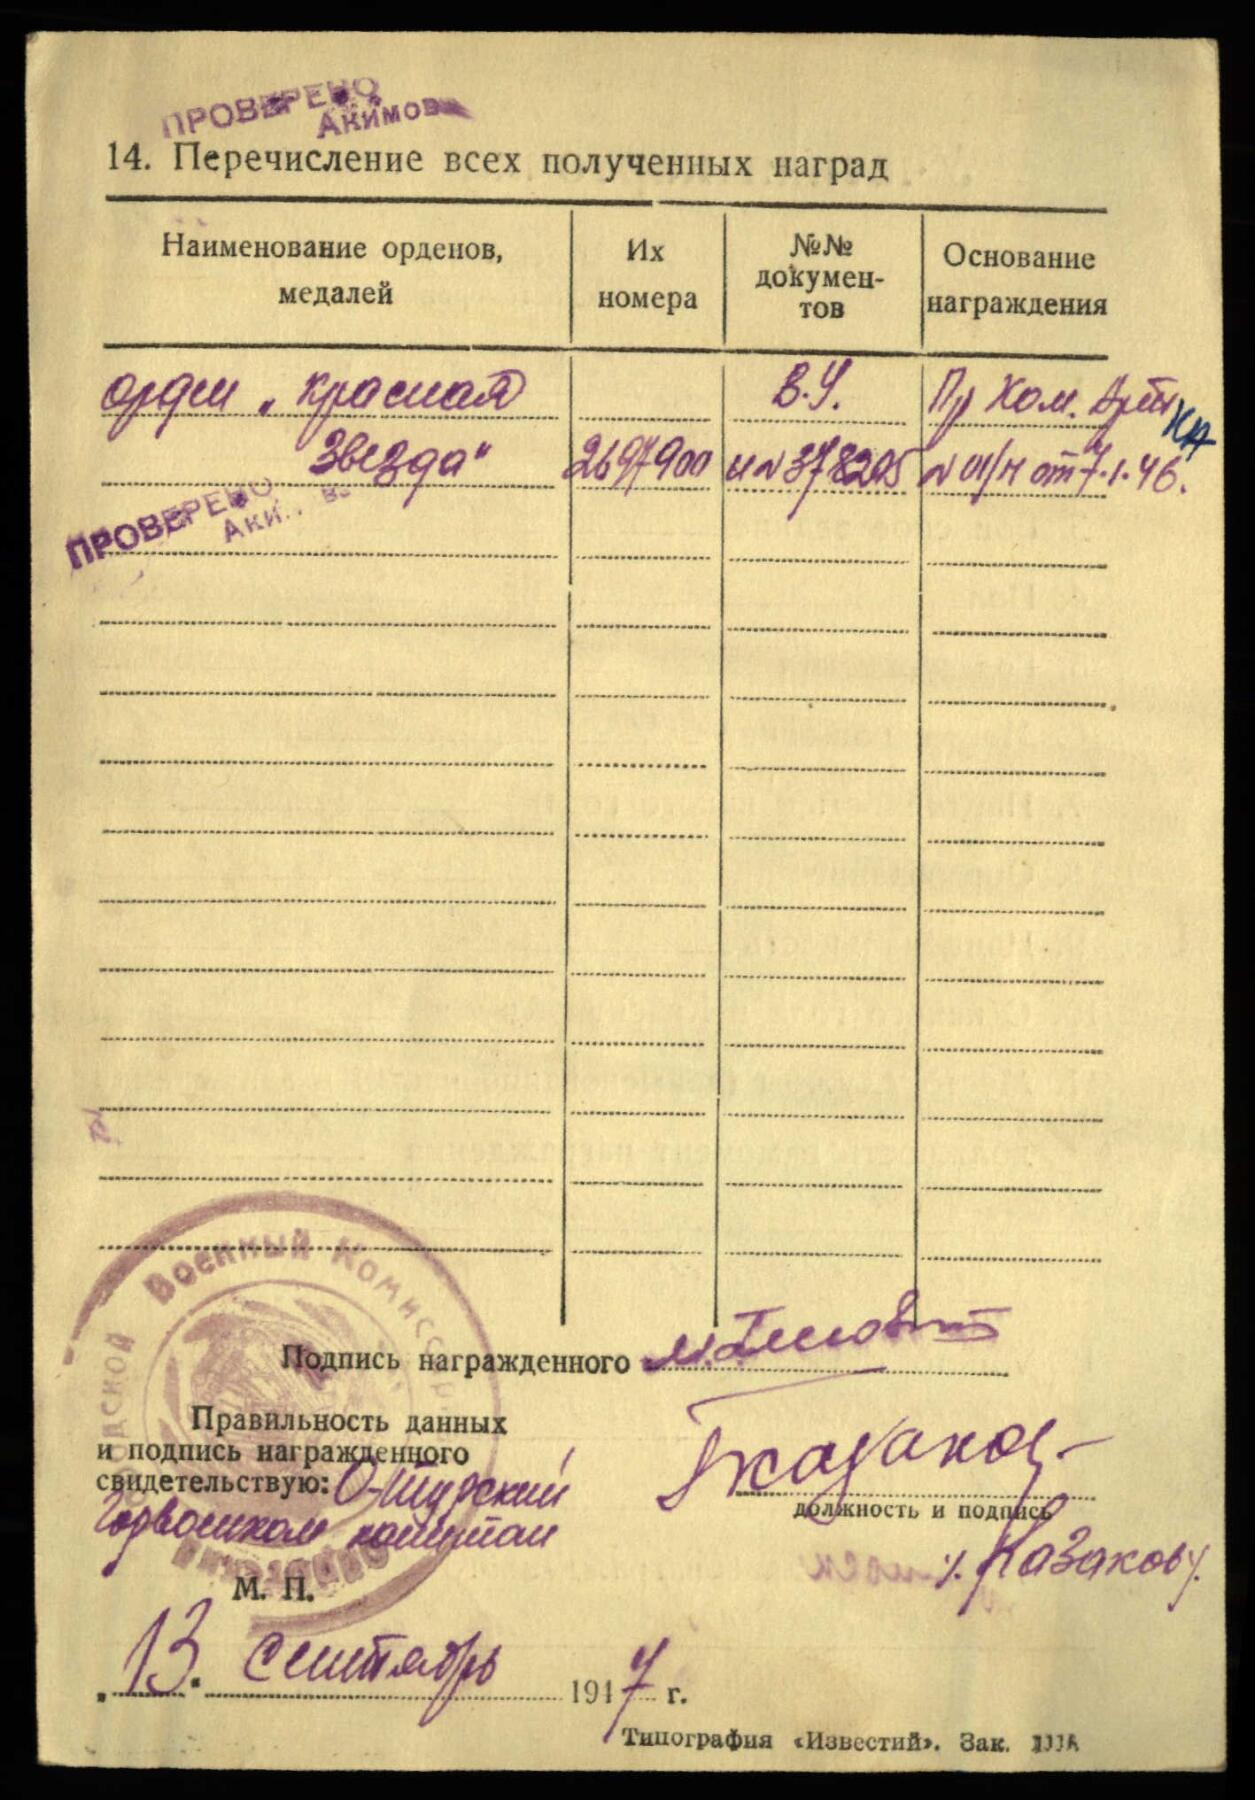 ПРОВЕРЕНО
АКИМОВ
14. Перечисление всех полученных наград
Наименование орденов, медалей
Их номера
№№ докумен- тов
Основание награждения
орден „Красная В.У. Пр Ком. Арт КА
Звезда" 2697900 и N 378205 N 01/Н от 7.1.46.
ПРОВЕРЕНО
Военный Комисс
Подпись награжденного
Правильность данных
и подпись награжденного
свидетельствую:
Горвоенком капитан
должность и подпись
/. Казаков /.
М. П.
„13. сентябрь 1947 г.
Типография «Известий». Зак.